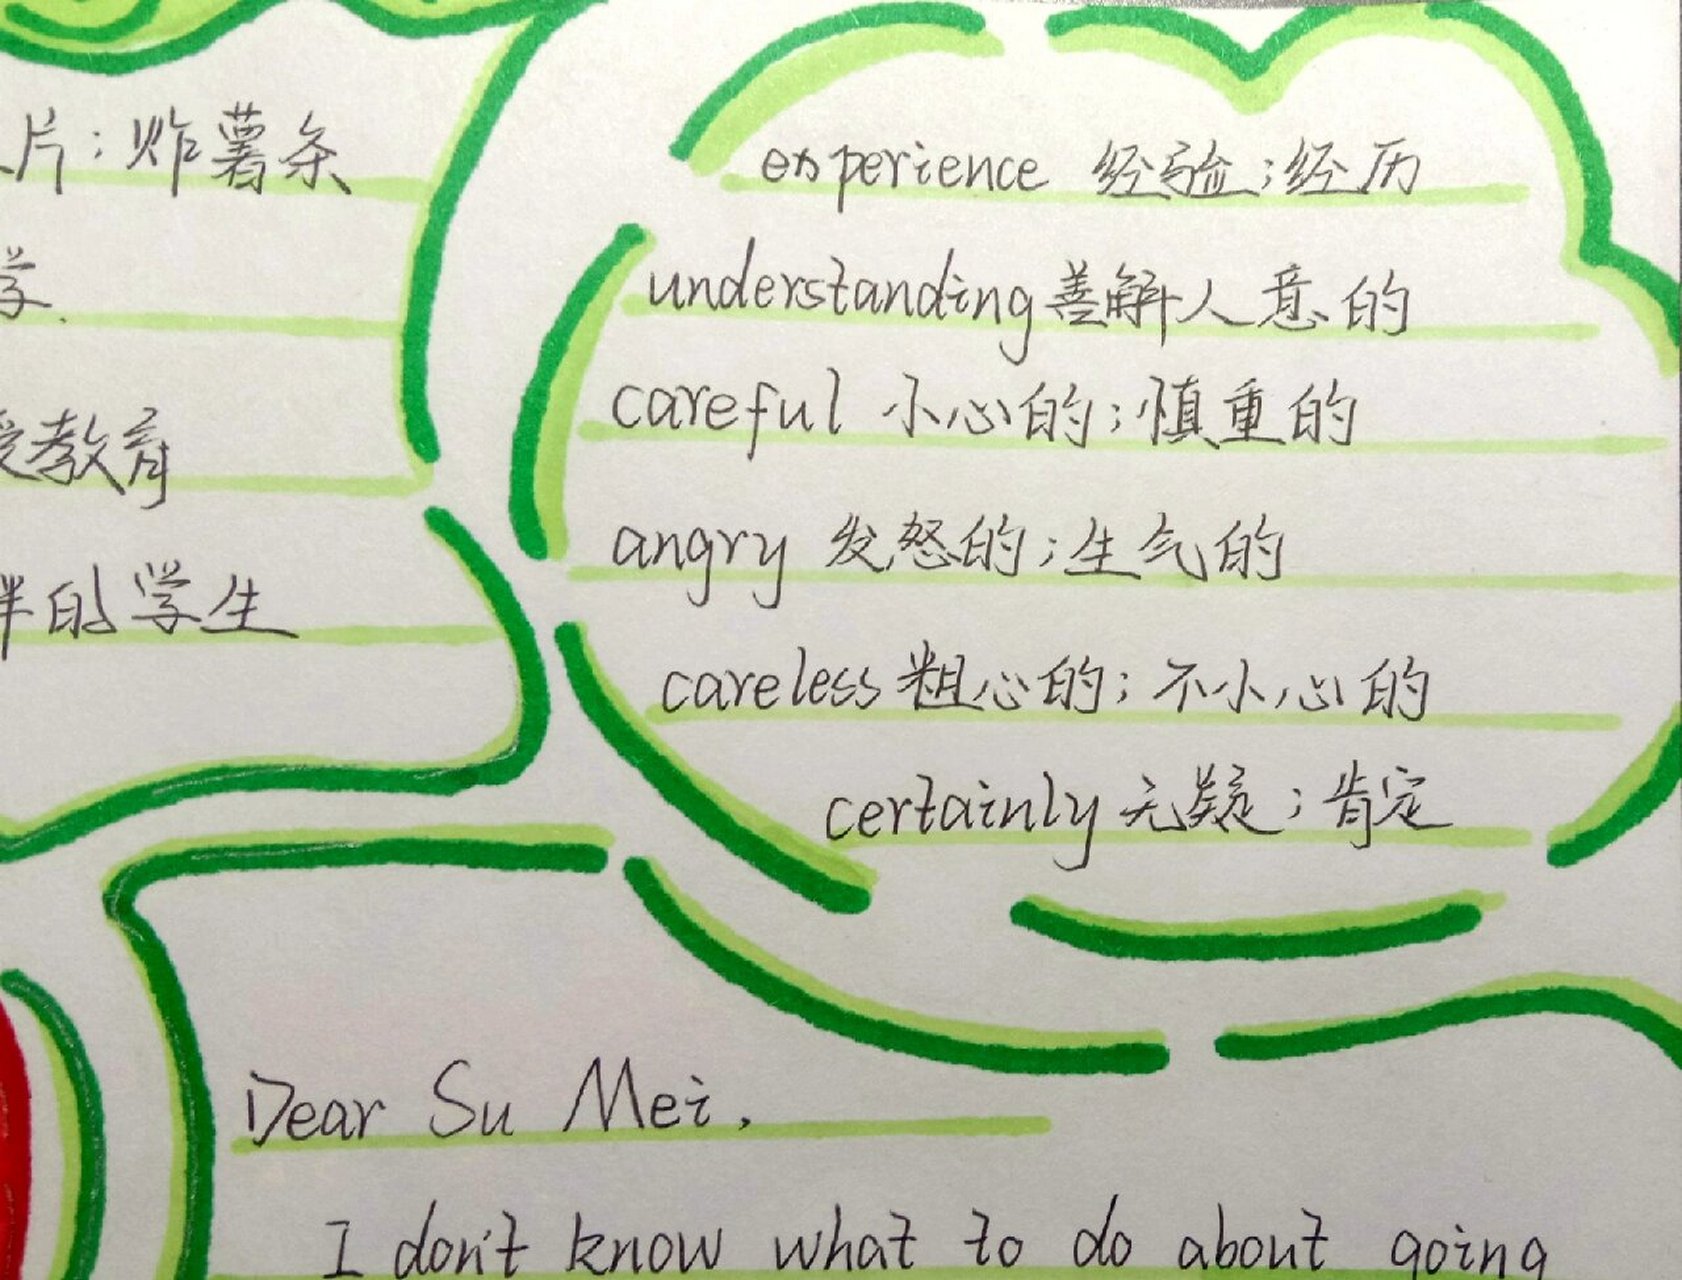 片；炸薯条
学.
教育
的学生
experience 经验；经历
understanding 善解人意的
careful 小心的；慎重的
angry 发怒的；生气的
careless 粗心的；不小心的
certainly 无疑；肯定
Dear Su Mei,
I don't know what to do about going